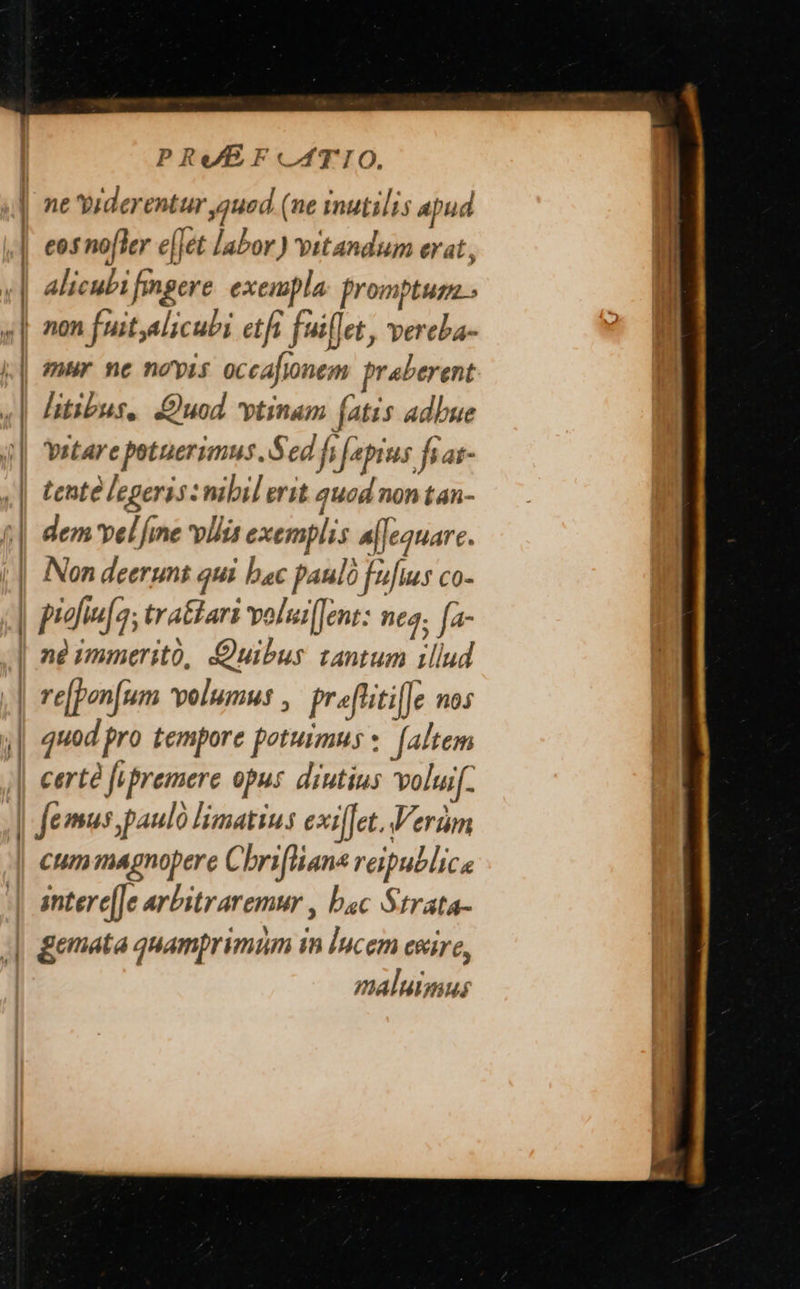 PRÆFATIO.
ne viderentur, quod (ne inutilis apud
eos noſter eſſet labor) vitandum erat,
alicubi fingere exempla promptum
non fuit, alicubi etſi fuiſſet, vereba-
mur ne novis occaſionem præberent
litibus. Quod vtinam ſatis adhuc
vitare potuerimus. Sed ſi ſæpius ſi at-
tentè legeris: nihil erit quod non tan-
dem vel ſine vllis exemplis aſſequare.
Non deerunt qui hæc paulò fuſius co-
pioſiuſq; tractari voluiſſent: neq; ſa-
nè immeritò. Quibus tantum illud
reſponſum volumus, præſtitiſſe nos
quod pro tempore potuimus: ſaltem
certè ſi premere opus diutius voluiſ-
ſemus, paulò limatius exiſſet. Verùm
cum magnopere Chriſtianæ reipublicæ
intereſſe arbitraremur, hæc Strata-
gemata quamprimùm in lucem exire,
maluimus